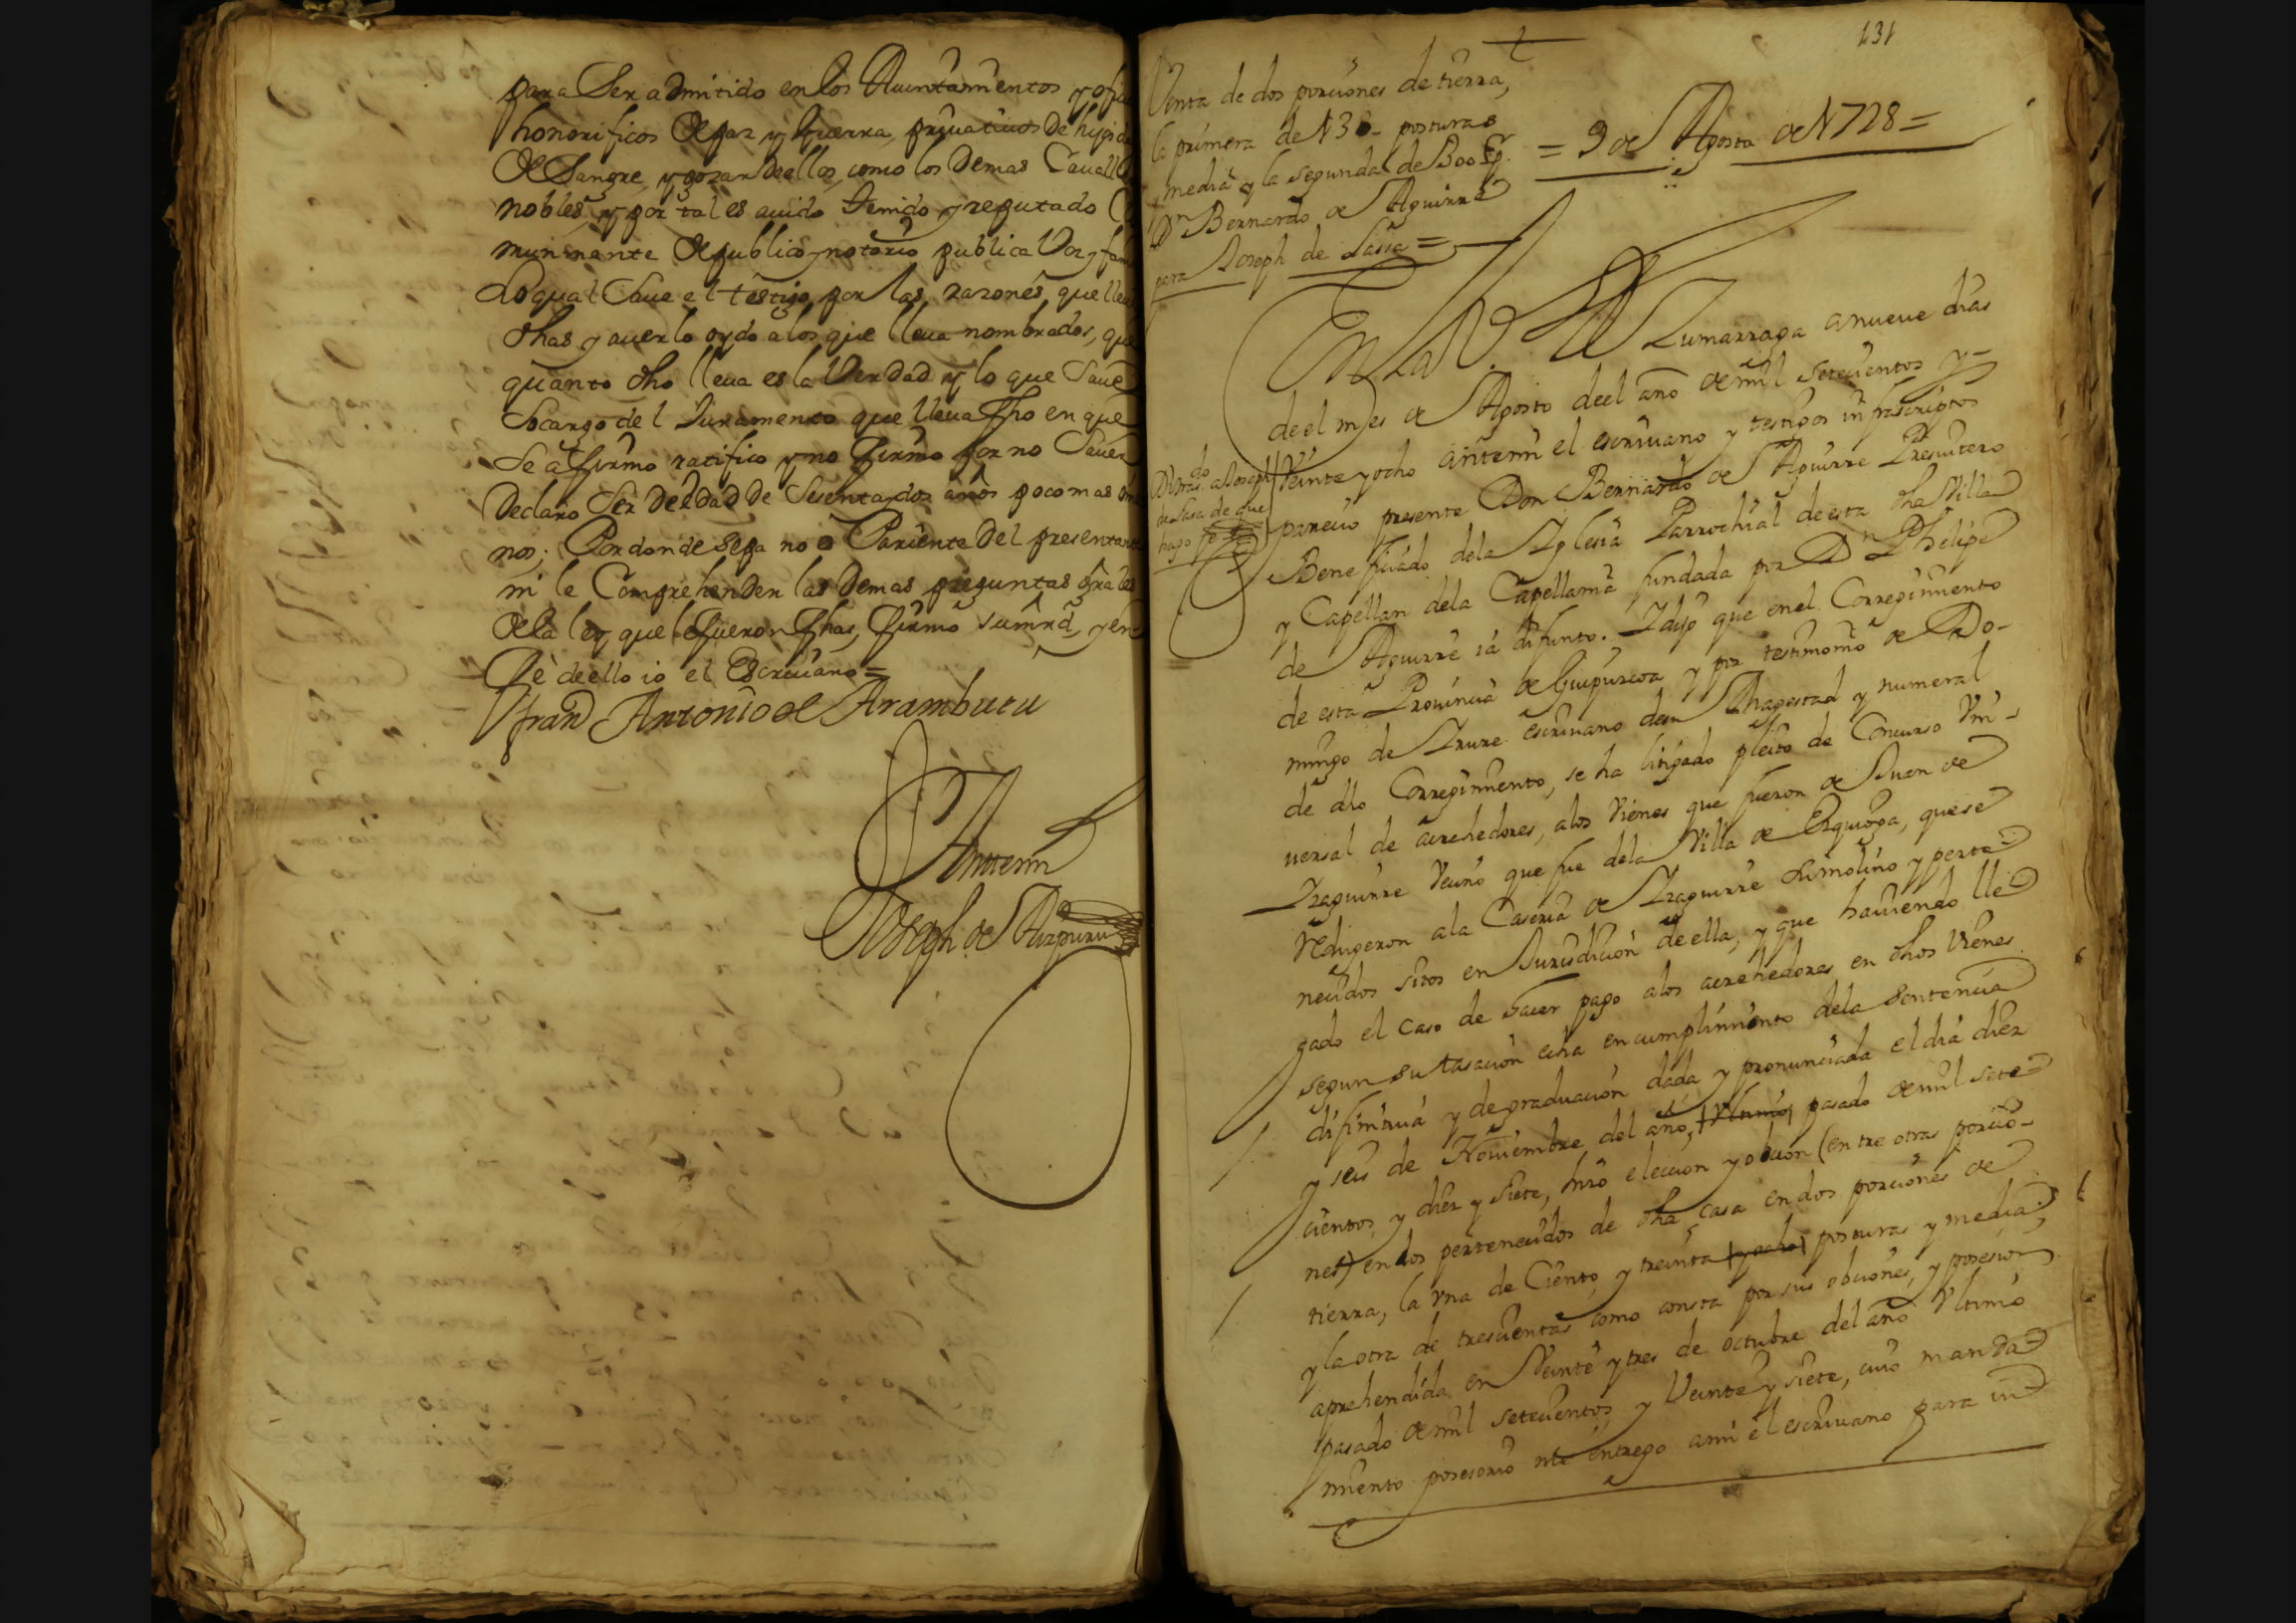 para Ser admitido en los Aiuntamientos y ofici
honorificos de paz y Guerra, privativos de hijosda
de Sangre, y gozar de ellos, como los demas Cavalle
nobles, y por tal es auido tenido y reputado Co
munmente de publico y notorio publica voz y fama
Lo qual Saue el testigo, por las razones, que lleua
dhas y auerlo oydo a los que lleua nombrados, que
quanto dho lleua es la Verdad y lo que Saue
Socargo del Juramento que lleua fho en que
Se afirmo ratifico y no firmo por no Sauer
Declaro Ser de edad de Sesenta y dos años poco mas o me
nos; Por donde sepa no es Pariente del presentante
ni le Comprehenden las demas preguntas gra les
de la ley, que le fueron fhas, firmo sumrd, y en
fe de ello io el Escriuano=
Fran Antonio de Aramburu
Antemi
Joseph de Aizpuru
131
Venta de dos porciones de tierra,
la primera de 130 posturas
y media y la segunda de 300 Pr.
Dn Bernardo de Aguirre
para Joseph de Sasia=
= 9 de Agosto de 1728=
En la Va de Zumarraga a nueue dias
de el mes de Agosto de el año de mil setecientos y
Veinte y ocho ante mi el escriuano y testigos infrascriptos
parecio presente Don Bernardo de Aguirre Presuitero
Beneficiado de la Iglesia Parrochial de esta dha Villa
y Capellan de la Capellania fundada por Dn Phelipe
de Aguirre ia difunto. I dijo que en el Corregimiento
de esta Prouincia de Guipuzcoa y por testimonio de Do-
mingo de Irure escriuano de su Magestad y numeral
de dho Corregimiento, se ha litigado pleito de Concurso Vni-
uersal de acrehedores, a los Vienes que fueron de Juan de
Izaguirre Vecino que fue de la Villa de Ezquioga, que se
Redugeron a la Caseria de Izaguirre su molino y perte
necidos sitos en Jurisdicion de ella, y que hauiendo lle
gado el caso de hacer pago a los acrehedores en dhos Vienes
segun su tasacion echa en cumplimiento de la sentencia
difinitiua y de graduacion dada y pronunciada el dia diez
y seis de Nouiembre del año, Vltimo, pasado de mil sete
cientos y diez y siete, hizo eleccion y obcion (entre otras porcio-
nes) en los pertenecidos de dha casa en dos porciones de
tierra, la vna de Ciento y treinta y ocho posturas y media,
y la otra de trescientas como consta por sus obciones, y posesion
aprehendida en Veinte y tres de octubre del año Vltimo
pasado de mil setecientos y Veinte y siete, cuio manda
miento posesorio me entrego a mi el escriuano para in